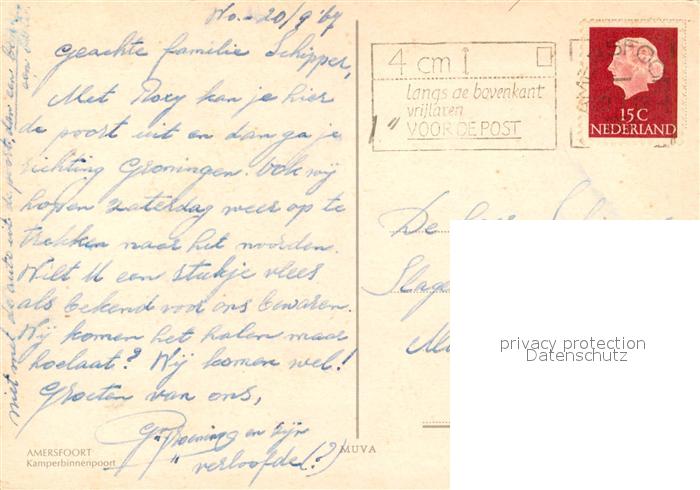 Wo. - 20/9 '67
Geachte familie Schipper,
Met Roxy kan je hier
de poort uit en dan ga je
richting Groningen. Ook wij
hopen zaterdag weer op te
trekken naar het noorden.
Wilt U een stukje vlees
als bekend voor ons bewaren.
Wij komen het halen maar
hoelaat? Wij komen wel!
Groeten van ons,
en zijn
verloofde (?)
niet met de auto uit de poort, dan een
AMERSFOORT
Kamperbinnenpoort
MUVA
4 cm
langs de bovenkant
vrijlaten
VOOR DE POST
AMERSFOORT
15 C
NEDERLAND
De heer
Slage
privacy protection
Datenschutz